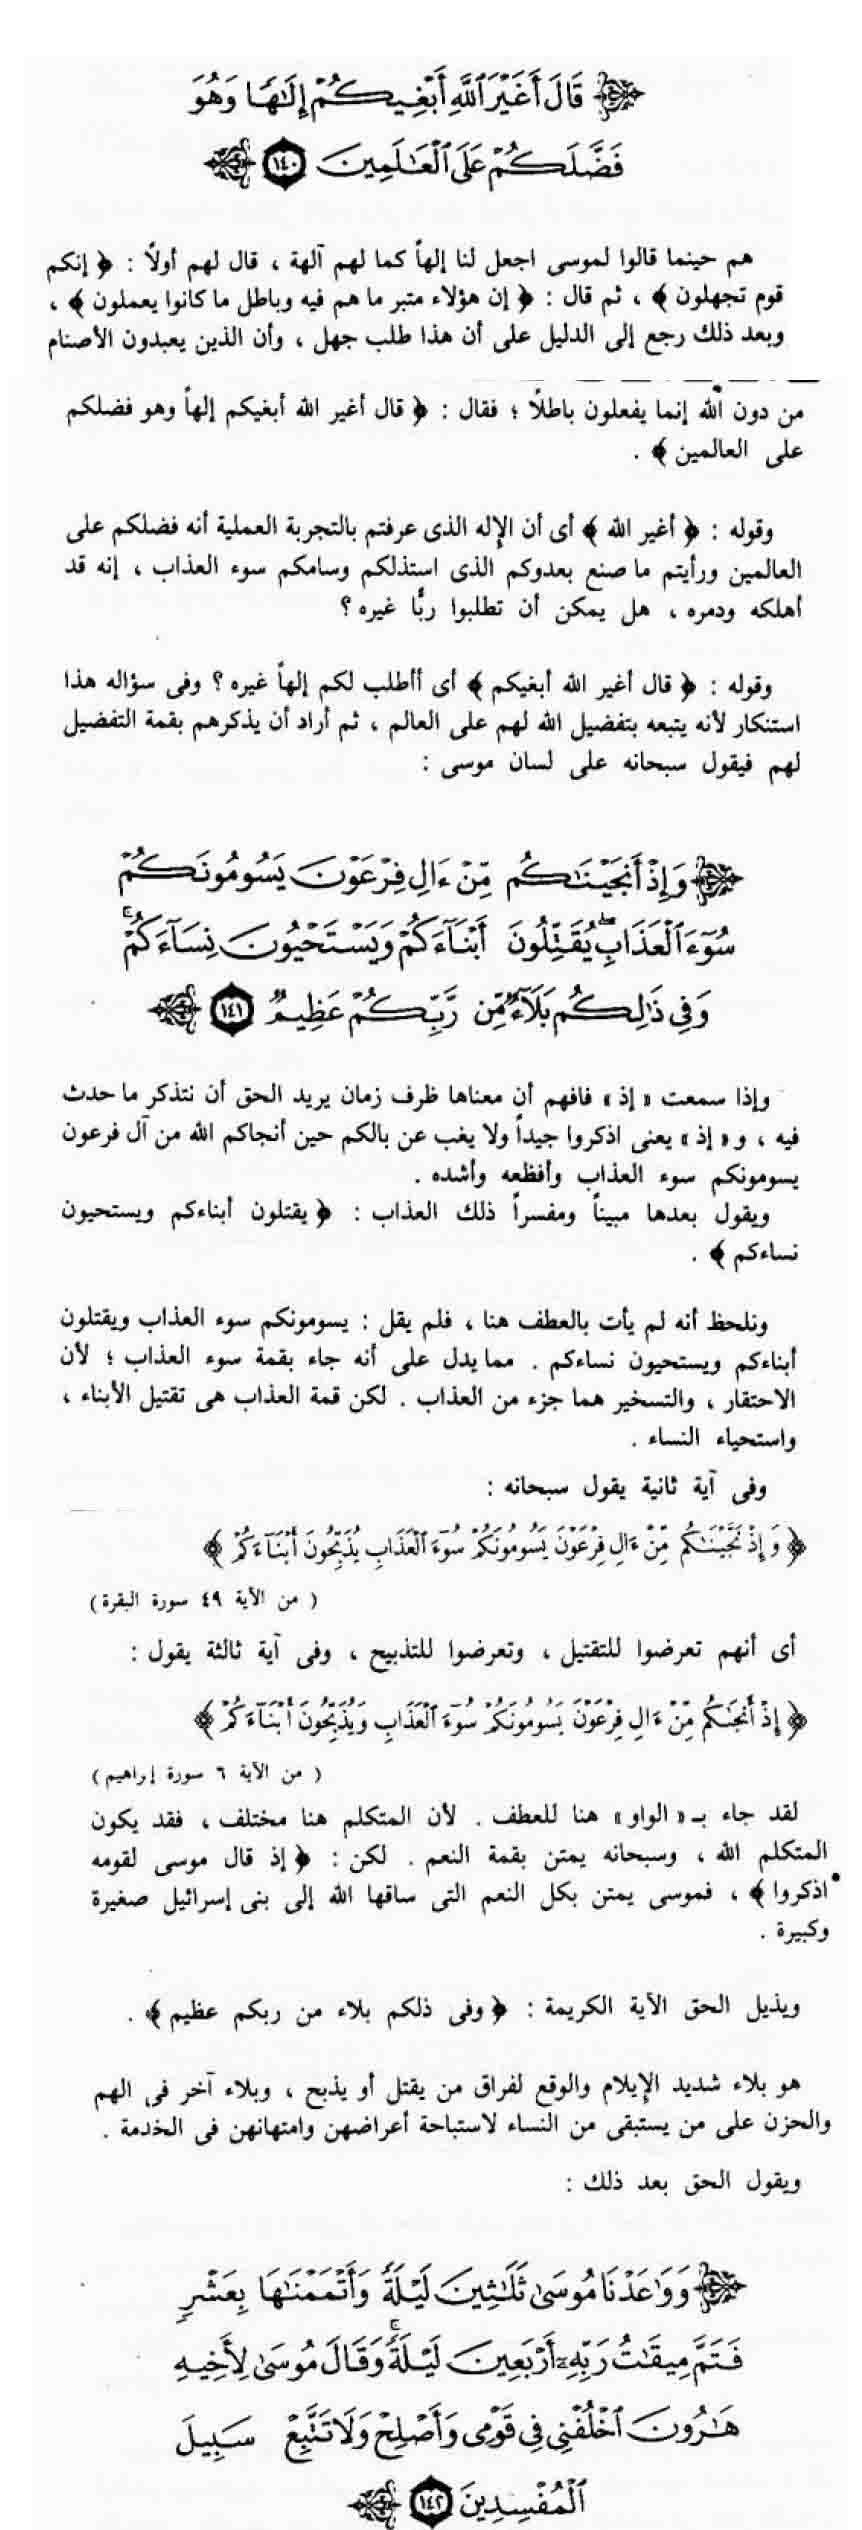 قَالَ أَغَيْرَ ٱللَّهِ أَبْغِيكُمْ إِلَٰهًا وَهُوَ
فَضَّلَكُمْ عَلَى ٱلْعَٰلَمِينَ ١٤٠
هم حينما قالوا لموسى اجعل لنا إلهاً كما لهم آلهة ، قال لهم أولًا : ﴿ إنكم
قوم تجهلون ﴾ ، ثم قال : ﴿ إن هؤلاء متبر ما هم فيه وباطل ما كانوا يعملون ﴾ ،
وبعد ذلك رجع إلى الدليل على أن هذا طلب جهل ، وأن الذين يعبدون الأصنام
من دون الله إنما يفعلون باطلًا ؛ فقال : ﴿ قال أغير الله أبغيكم إلهاً وهو فضلكم
على العالمين ﴾ .
وقوله : ﴿ أغير الله ﴾ أى أن الإله الذى عرفتم بالتجربة العملية أنه فضلكم على
العالمين ورأيتم ما صنع بعدوكم الذى استذلكم وسامكم سوء العذاب ، إنه قد
أهلكه ودمره ، هل يمكن أن تطلبوا ربًّا غيره ؟
وقوله : ﴿ قال أغير الله أبغيكم ﴾ أى أأطلب لكم إلهاً غيره ؟ وفى سؤاله هذا
استنكار لأنه يتبعه بتفضيل الله لهم على العالم ، ثم أراد أن يذكرهم بقمة التفضيل
لهم فيقول سبحانه على لسان موسى :
وَإِذْ أَنجَيْنَٰكُم مِّنْ ءَالِ فِرْعَوْنَ يَسُومُونَكُمْ
سُوٓءَ ٱلْعَذَابِ ۖ يُقَتِّلُونَ أَبْنَآءَكُمْ وَيَسْتَحْيُونَ نِسَآءَكُمْ ۚ
وَفِى ذَٰلِكُم بَلَآءٌ مِّن رَّبِّكُمْ عَظِيمٌ ١٤١
وإذا سمعت « إذ » فافهم أن معناها ظرف زمان يريد الحق أن نتذكر ما حدث
فيه ، و « إذ » يعنى اذكروا جيداً ولا يغب عن بالكم حين أنجاكم الله من آل فرعون
يسومونكم سوء العذاب وأفظعه وأشده .
ويقول بعدها مبيناً ومفسراً ذلك العذاب : ﴿ يقتلون أبناءكم ويستحيون
نساءكم ﴾ .
ونلحظ أنه لم يأت بالعطف هنا ، فلم يقل : يسومونكم سوء العذاب ويقتلون
أبناءكم ويستحيون نساءكم . مما يدل على أنه جاء بقمة سوء العذاب ؛ لأن
الاحتقار ، والتسخير هما جزء من العذاب . لكن قمة العذاب هى تقتيل الأبناء ،
واستحياء النساء .
وفى آية ثانية يقول سبحانه :
﴿ وَإِذْ نَجَّيْنَٰكُم مِّنْ ءَالِ فِرْعَوْنَ يَسُومُونَكُمْ سُوٓءَ ٱلْعَذَابِ يُذَبِّحُونَ أَبْنَآءَكُمْ ﴾
( من الآية ٤٩ سورة البقرة )
أى أنهم تعرضوا للتقتيل ، وتعرضوا للتذبيح ، وفى آية ثالثة يقول :
﴿ إِذْ أَنجَىٰكُم مِّنْ ءَالِ فِرْعَوْنَ يَسُومُونَكُمْ سُوٓءَ ٱلْعَذَابِ وَيُذَبِّحُونَ أَبْنَآءَكُمْ ﴾
( من الآية ٦ سورة إبراهيم )
لقد جاء بـ « الواو » هنا للعطف . لأن المتكلم هنا مختلف ، فقد يكون
المتكلم الله ، وسبحانه يمتن بقمة النعم . لكن : ﴿ إذ قال موسى لقومه
اذكروا ﴾ ، فموسى يمتن بكل النعم التى ساقها الله إلى بنى إسرائيل صغيرة
وكبيرة .
ويذيل الحق الآية الكريمة : ﴿ وفى ذلكم بلاء من ربكم عظيم ﴾ .
هو بلاء شديد الإيلام والوقع لفراق من يقتل أو يذبح ، وبلاء آخر فى الهم
والحزن على من يستبقى من النساء لاستباحة أعراضهن وامتهانهن فى الخدمة .
ويقول الحق بعد ذلك :
وَوَٰعَدْنَا مُوسَىٰ ثَلَٰثِينَ لَيْلَةً وَأَتْمَمْنَٰهَا بِعَشْرٍ
فَتَمَّ مِيقَٰتُ رَبِّهِۦٓ أَرْبَعِينَ لَيْلَةً ۚ وَقَالَ مُوسَىٰ لِأَخِيهِ
هَٰرُونَ ٱخْلُفْنِى فِى قَوْمِى وَأَصْلِحْ وَلَا تَتَّبِعْ سَبِيلَ
ٱلْمُفْسِدِينَ ١٤٢